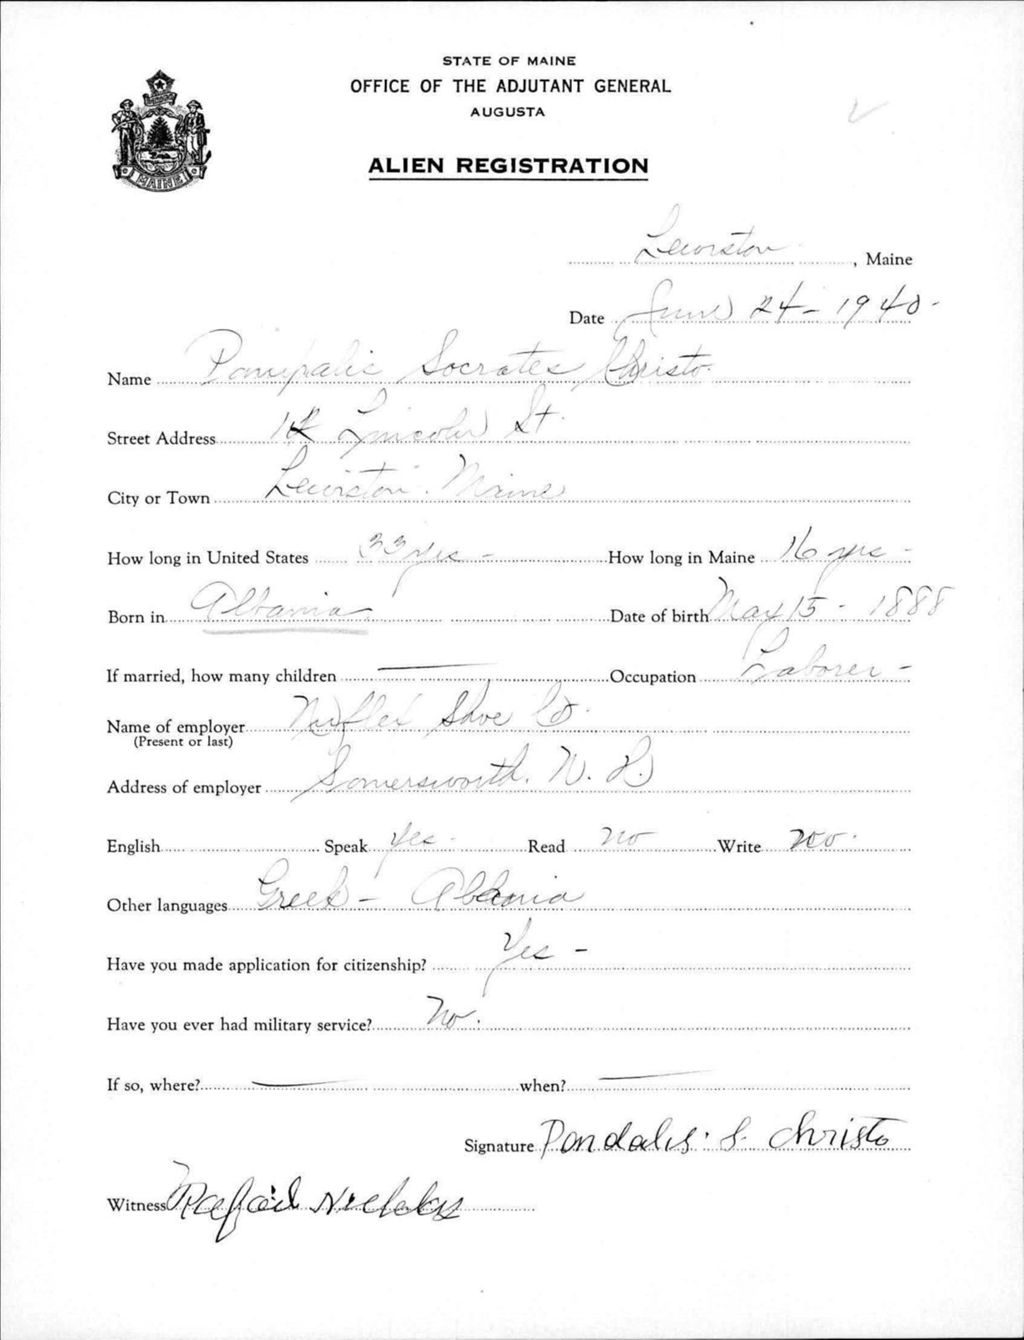 STATE OF MAINE
OFFICE OF THE ADJUTANT GENERAL
AUGUSTA
MAINE
ALIEN REGISTRATION
Lewiston, Maine
Date June 24 - 1940 -
Name Socrates Christo.
Street Address Lincoln St.
City or Town Lewiston. Maine
How long in United States 33 yrs - How long in Maine 16 yrs -
Born in Albania Date of birth May 15 - 1888
If married, how many children — Occupation Laborer -
Name of employer Shoe Co.
(Present or last)
Address of employer Somersworth. N. H.
English Speak Yes - Read no Write no.
Other languages Greek - Albania
Have you made application for citizenship? Yes -
Have you ever had military service? No.
If so, where? — when? —
Signature Pandalis. S. Christo
Witness